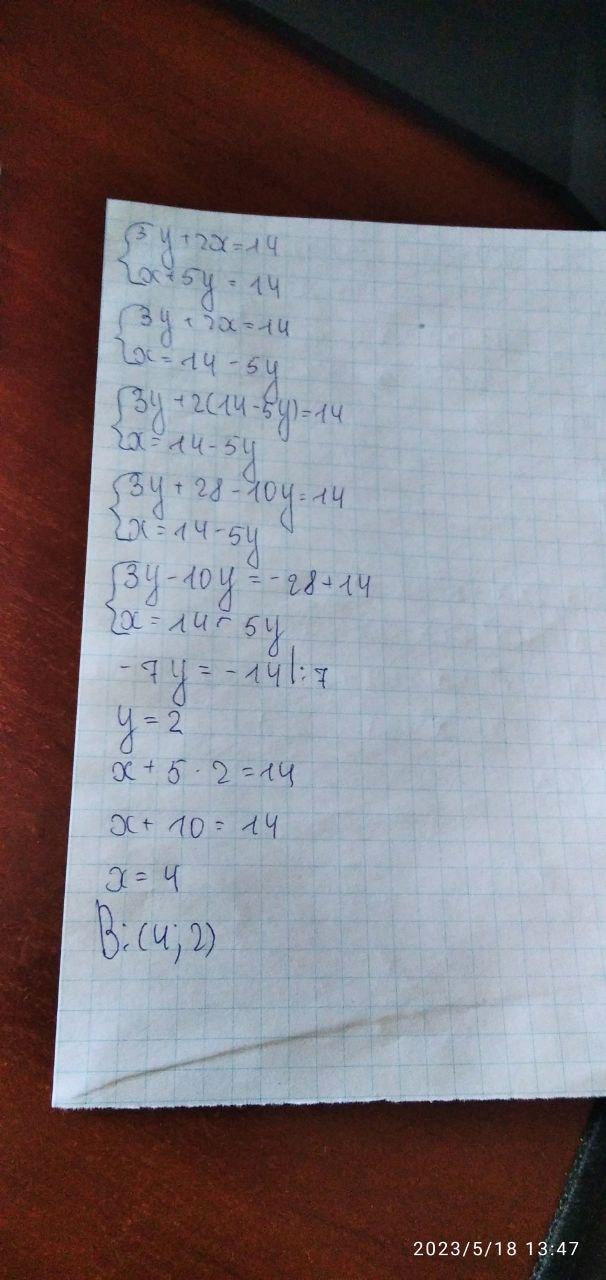 {3y+2x=14
{x+5y=14
{3y+2x=14
{x=14-5y
{3y+2(14-5y)=14
{x=14-5y
{3y+28-10y=14
{x=14-5y
{3y-10y=-28+14
{x=14-5y
-7y=-14|:7
y=2
x+5·2=14
x+10=14
x=4
В:(4;2)
2023/5/18 13:47